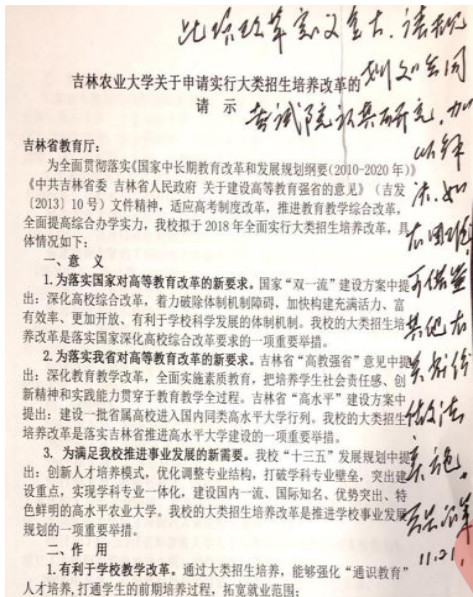 此项改革意义重大,请规
划处会同
考试院认真研究,加
以解
决,如
11.21.
吉林农业大学关于申请实行大类招生培养改革的
请 示
吉林省教育厅:
为全面贯彻落实《国家中长期教育改革和发展规划纲要(2010-2020年)》
《中共吉林省委 吉林省人民政府 关于建设高等教育强省的意见》(吉发
〔2013〕10号)文件精神,适应高考制度改革,推进教育教学综合改革,
全面提高综合办学实力,我校拟于2018年全面实行大类招生培养改革,具
体情况如下:
一、意 义
1.为落实国家对高等教育改革的新要求。国家“双一流”建设方案中提
出:深化高校综合改革,着力破除体制机制障碍,加快构建充满活力、富
有效率、更加开放、有利于学校科学发展的体制机制。我校的大类招生培
养改革是落实国家深化高校综合改革要求的一项重要举措。
2.为落实我省对高等教育改革的新要求。吉林省“高教强省”意见中提
出:深化教育教学改革,全面实施素质教育,把培养学生社会责任感、创
新精神和实践能力贯穿于教育教学全过程。吉林省“高水平”建设方案中
提出:建设一批省属高校进入国内同类高水平大学行列。我校的大类招生
培养改革是落实吉林省推进高水平大学建设的一项重要举措。
3. 为满足我校推进事业发展的新需要。我校“十三五”发展规划中提
出:创新人才培养模式,优化调整专业结构,打破学科专业壁垒,突出建
设重点,实现学科专业一体化,建设国内一流、国际知名、优势突出、特
色鲜明的高水平农业大学。我校的大类招生培养改革是推进学校事业发展
规划的一项重要举措。
二、作 用
1.有利于学校教学改革。通过大类招生培养,能够强化“通识教育”
人才培养,打通学生的前期培养过程,拓宽就业范围;